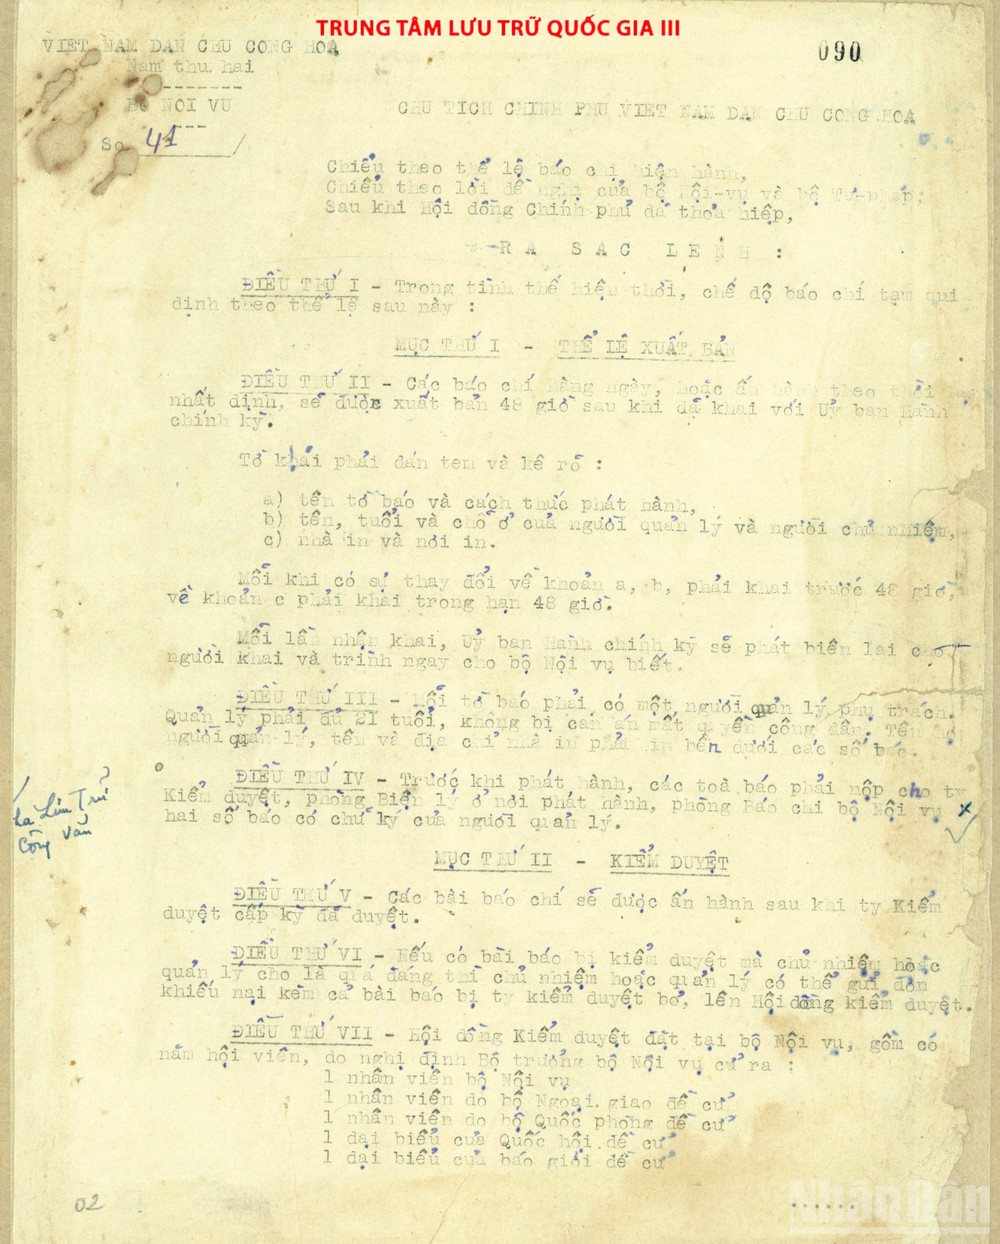 TRUNG TÂM LƯU TRỮ QUỐC GIA III
VIỆT NAM DAN CHU CONG HOA
090
Nam thu hai
BO NOI VU
CHU TICH CHINH PHU VIET NAM DAN CHU CONG HOA
So 41 /
Chiểu theo thể lệ báo chị hiện hành,
Chiểu theo lời đề nghị của bộ Nội-vụ và bộ Tư-pháp;
Sau khi Hội đồng Chính phủ đã thoả hiệp,
RA SAC LENH :
ĐIỀU THỨ I - Trong tình thế hiện thời, chế độ báo chí tạm qui
định theo thể lệ sau này :
MỤC THỨ I - THỂ LỆ XUẤT BẢN
ĐIỀU THỨ II - Các báo chí hàng ngày, hoặc ấn hành theo thời
nhất định, sẽ được xuất bản 48 giờ sau khi đã khai với Uỷ ban Hành
chính kỳ.
Tờ khai phải dán tem và kê rõ :
a) tên tờ báo và cách thức phát hành,
b) tên, tuổi và chỗ ở của người quản lý và người chủ nhiệm,
c) nhà in và nơi in.
Mỗi khi có sự thay đổi về khoản a, b, phải khai trước 48 giờ,
về khoản c phải khai trong hạn 48 giờ.
Mỗi lần nhận khai, Uỷ ban Hành chính kỳ sẽ phát biên lai cho
người khai và trình ngay cho bộ Nội vụ biết.
ĐIỀU THỨ III - Mỗi tờ báo phải có một người quản lý phụ trách.
Quản lý phải đủ 21 tuổi, không bị can án mất quyền công dân. Tên họ
người quản lý, tên và địa chỉ nhà in phải in bên dưới các số báo.
ĐIỀU THỨ IV - Trước khi phát hành, các toà báo phải nộp cho ty
Kiểm duyệt, phòng Biện lý ở nơi phát hành, phòng Báo chí bộ Nội vụ x
hai số báo có chữ ký của người quản lý.
Lưu Trữ
Công Văn
MỤC THỨ II - KIỂM DUYỆT
ĐIỀU THỨ V - Các bài báo chí sẽ được ấn hành sau khi ty Kiểm
duyệt cấp kỳ đã duyệt.
ĐIỀU THỨ VI - Nếu có bài báo bị kiểm duyệt mà chủ nhiệm hoặc
quản lý cho là quá đáng thì chủ nhiệm hoặc quản lý có thể gửi đơn
khiếu nại kèm cả bài báo bị ty kiểm duyệt bỏ, lên Hội đồng kiểm duyệt.
ĐIỀU THỨ VII - Hội đồng Kiểm duyệt đặt tại bộ Nội vụ, gồm có
năm hội viên, do nghị định Bộ trưởng bộ Nội vụ cử ra :
1 nhân viên bộ Nội vụ
1 nhân viên do bộ Ngoại giao đề cử
1 nhân viên do bộ Quốc phòng đề cử
1 đại biểu của Quốc hội đề cử
1 đại biểu của báo giới đề cử
02
Nhân Dân